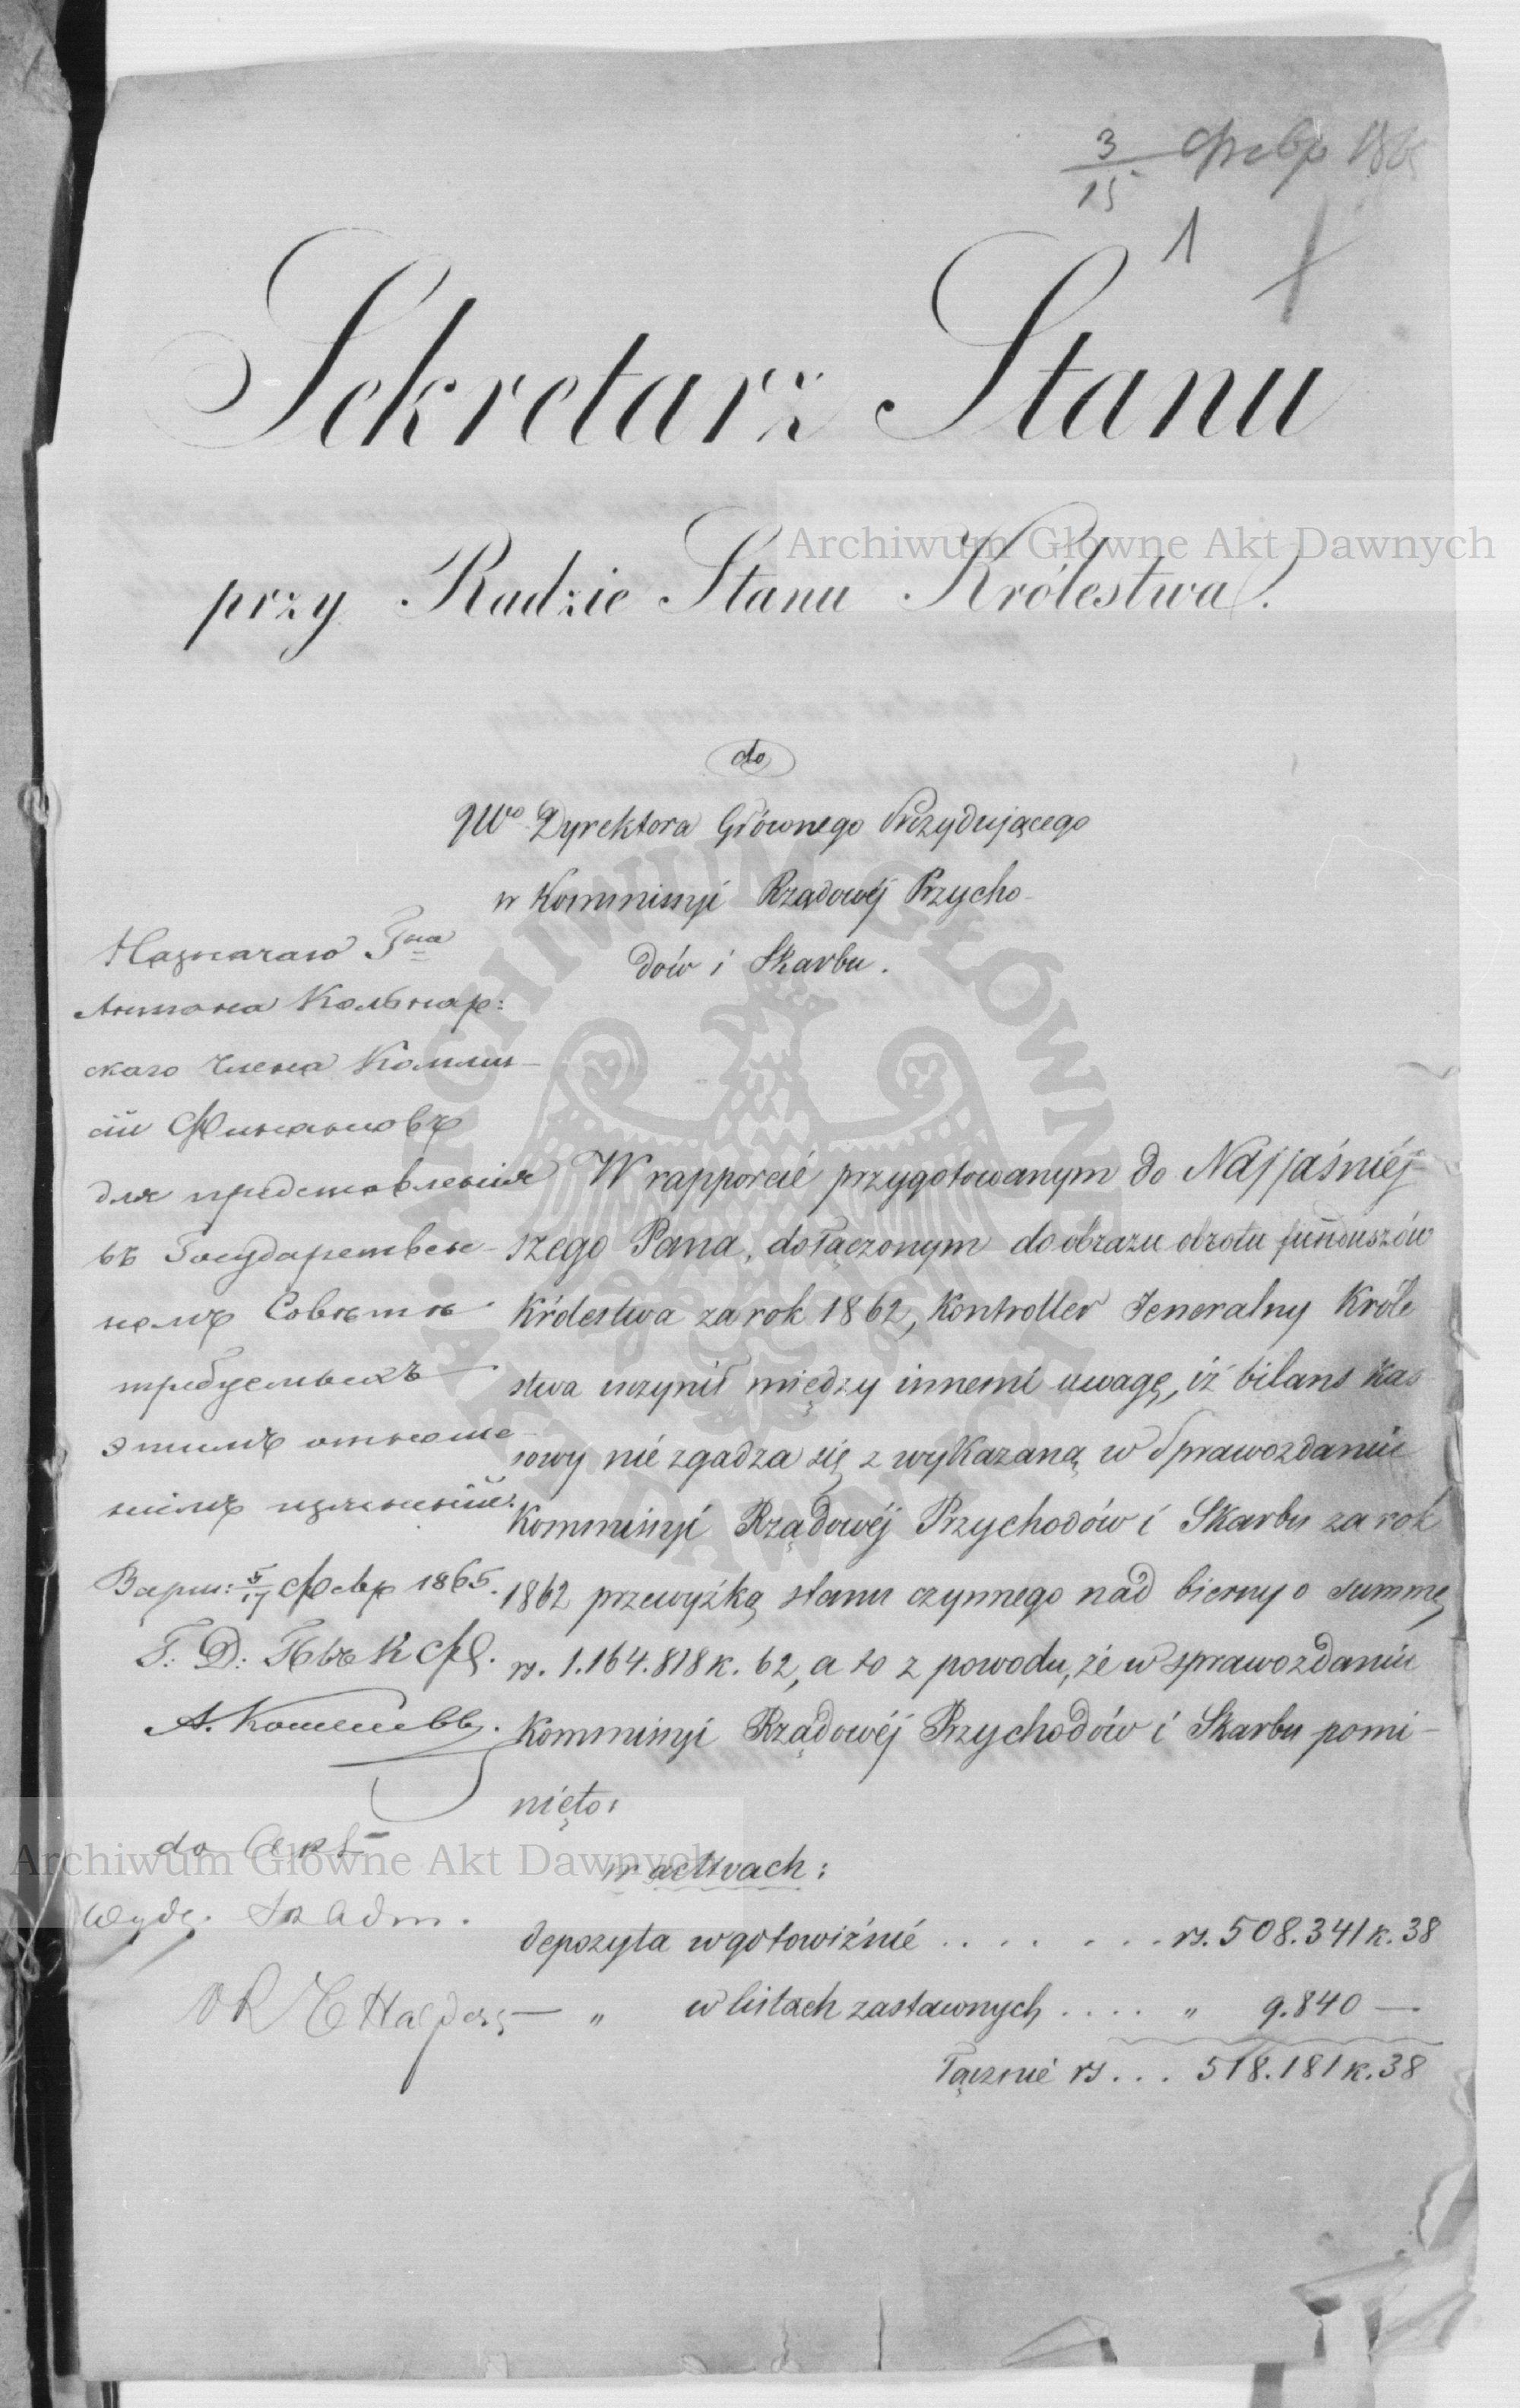 3/15 Февр 186
1
Sekretarz Stanu
przy Radzie Stanu Królestwa.
Archiwum Główne Akt Dawnych
do
JWo Dyrektora Głównego Prezydującego
w Kommissyi Rządowéj Przycho-
dów i Skarbu.
Назначаю Гна
Антона
скаго члена Коммис-
сіи Финансовъ
для представленія
въ Государствен-
номъ Совѣтѣ
требуемыхъ
этимъ отноше-
ніемъ изъясненій.
Варш: 5/17 Февр 1865.
Г. Д.
А. Кошелевъ.
do
Wydz. Adm.
W rapporcie przygotowanym do Najjaśniéj-
szego Pana, dołączonym do obrazu obrotu funduszów
Królestwa za rok 1862, Kontroller Jeneralny Króle
stwa uczynił między innemi uwagę, iż bilans kas
sowy nie zgadza się z wykazaną w Sprawozdaniu
Kommissyi Rządowéj Przychodów i Skarbu za rok
1862 przewyżką stanu czynnego nad bierny o summę
rs. 1.164.818 k. 62, a to z powodu, że w sprawozdaniu
Kommissyi Rządowéj Przychodów i Skarbu pomi-
nięto:
Archiwum Główne Akt Dawnych
w activach:
depozyta w gotowiźnie . . . . . . . rs. 508.341 k. 38
„ w listach zastawnych . . . . „ 9.840 —
Łącznie rs . . . 518.181 k. 38
ARCHIWUM GŁÓWNE AKT DAWNYCH